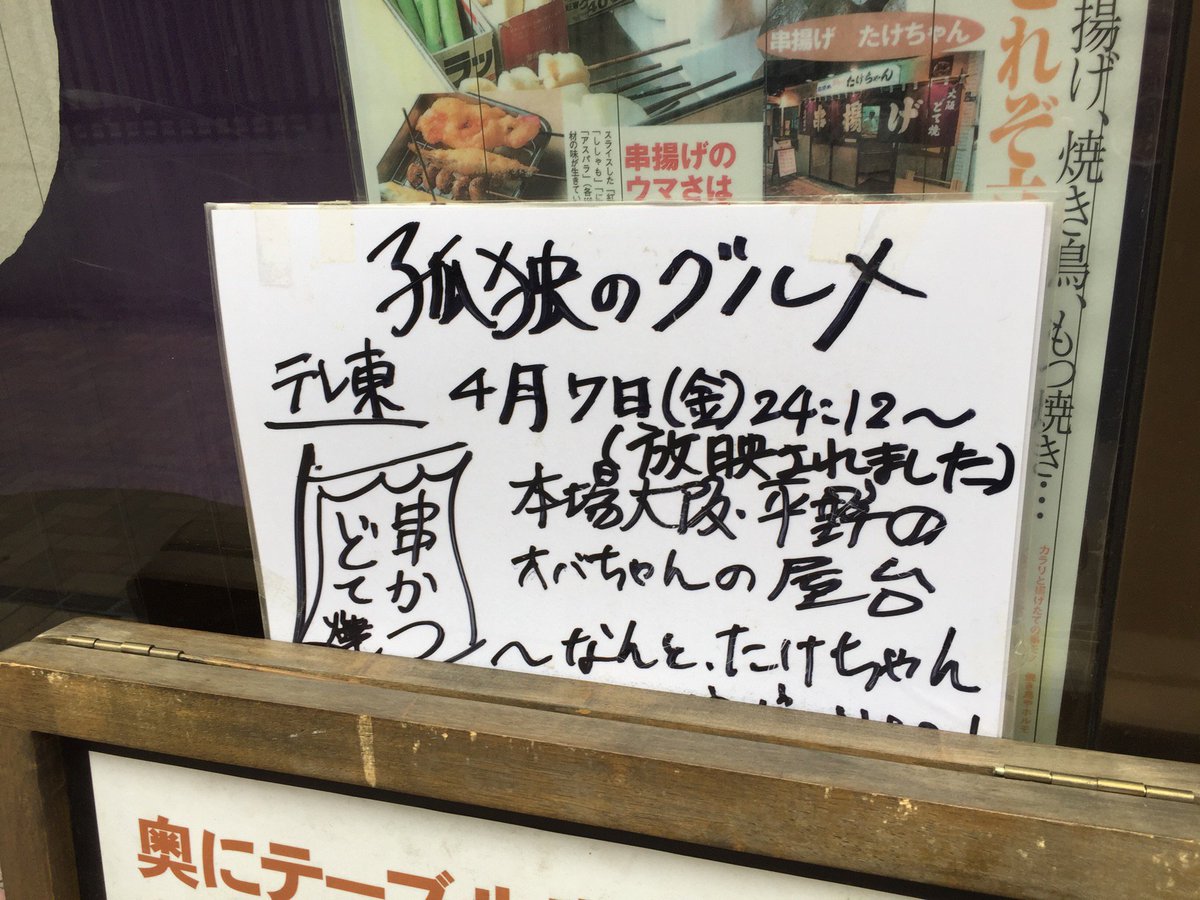 串揚げ たけちゃん
たけちゃん
串揚げ
どて焼
串揚げの
ウマさは
スライスした「紅
「ししゃも」「に
「アスパラ」(各
材の味が生きてい
揚げ、焼き鳥、もつ焼き…
れぞ
孤独のグルメ
テレ東
4月7日(金)24:12〜
(放映されました)
本場大阪・平野の
オバちゃんの屋台
〜なんと、たけちゃん
串かつ
どて焼
奥にテーブル